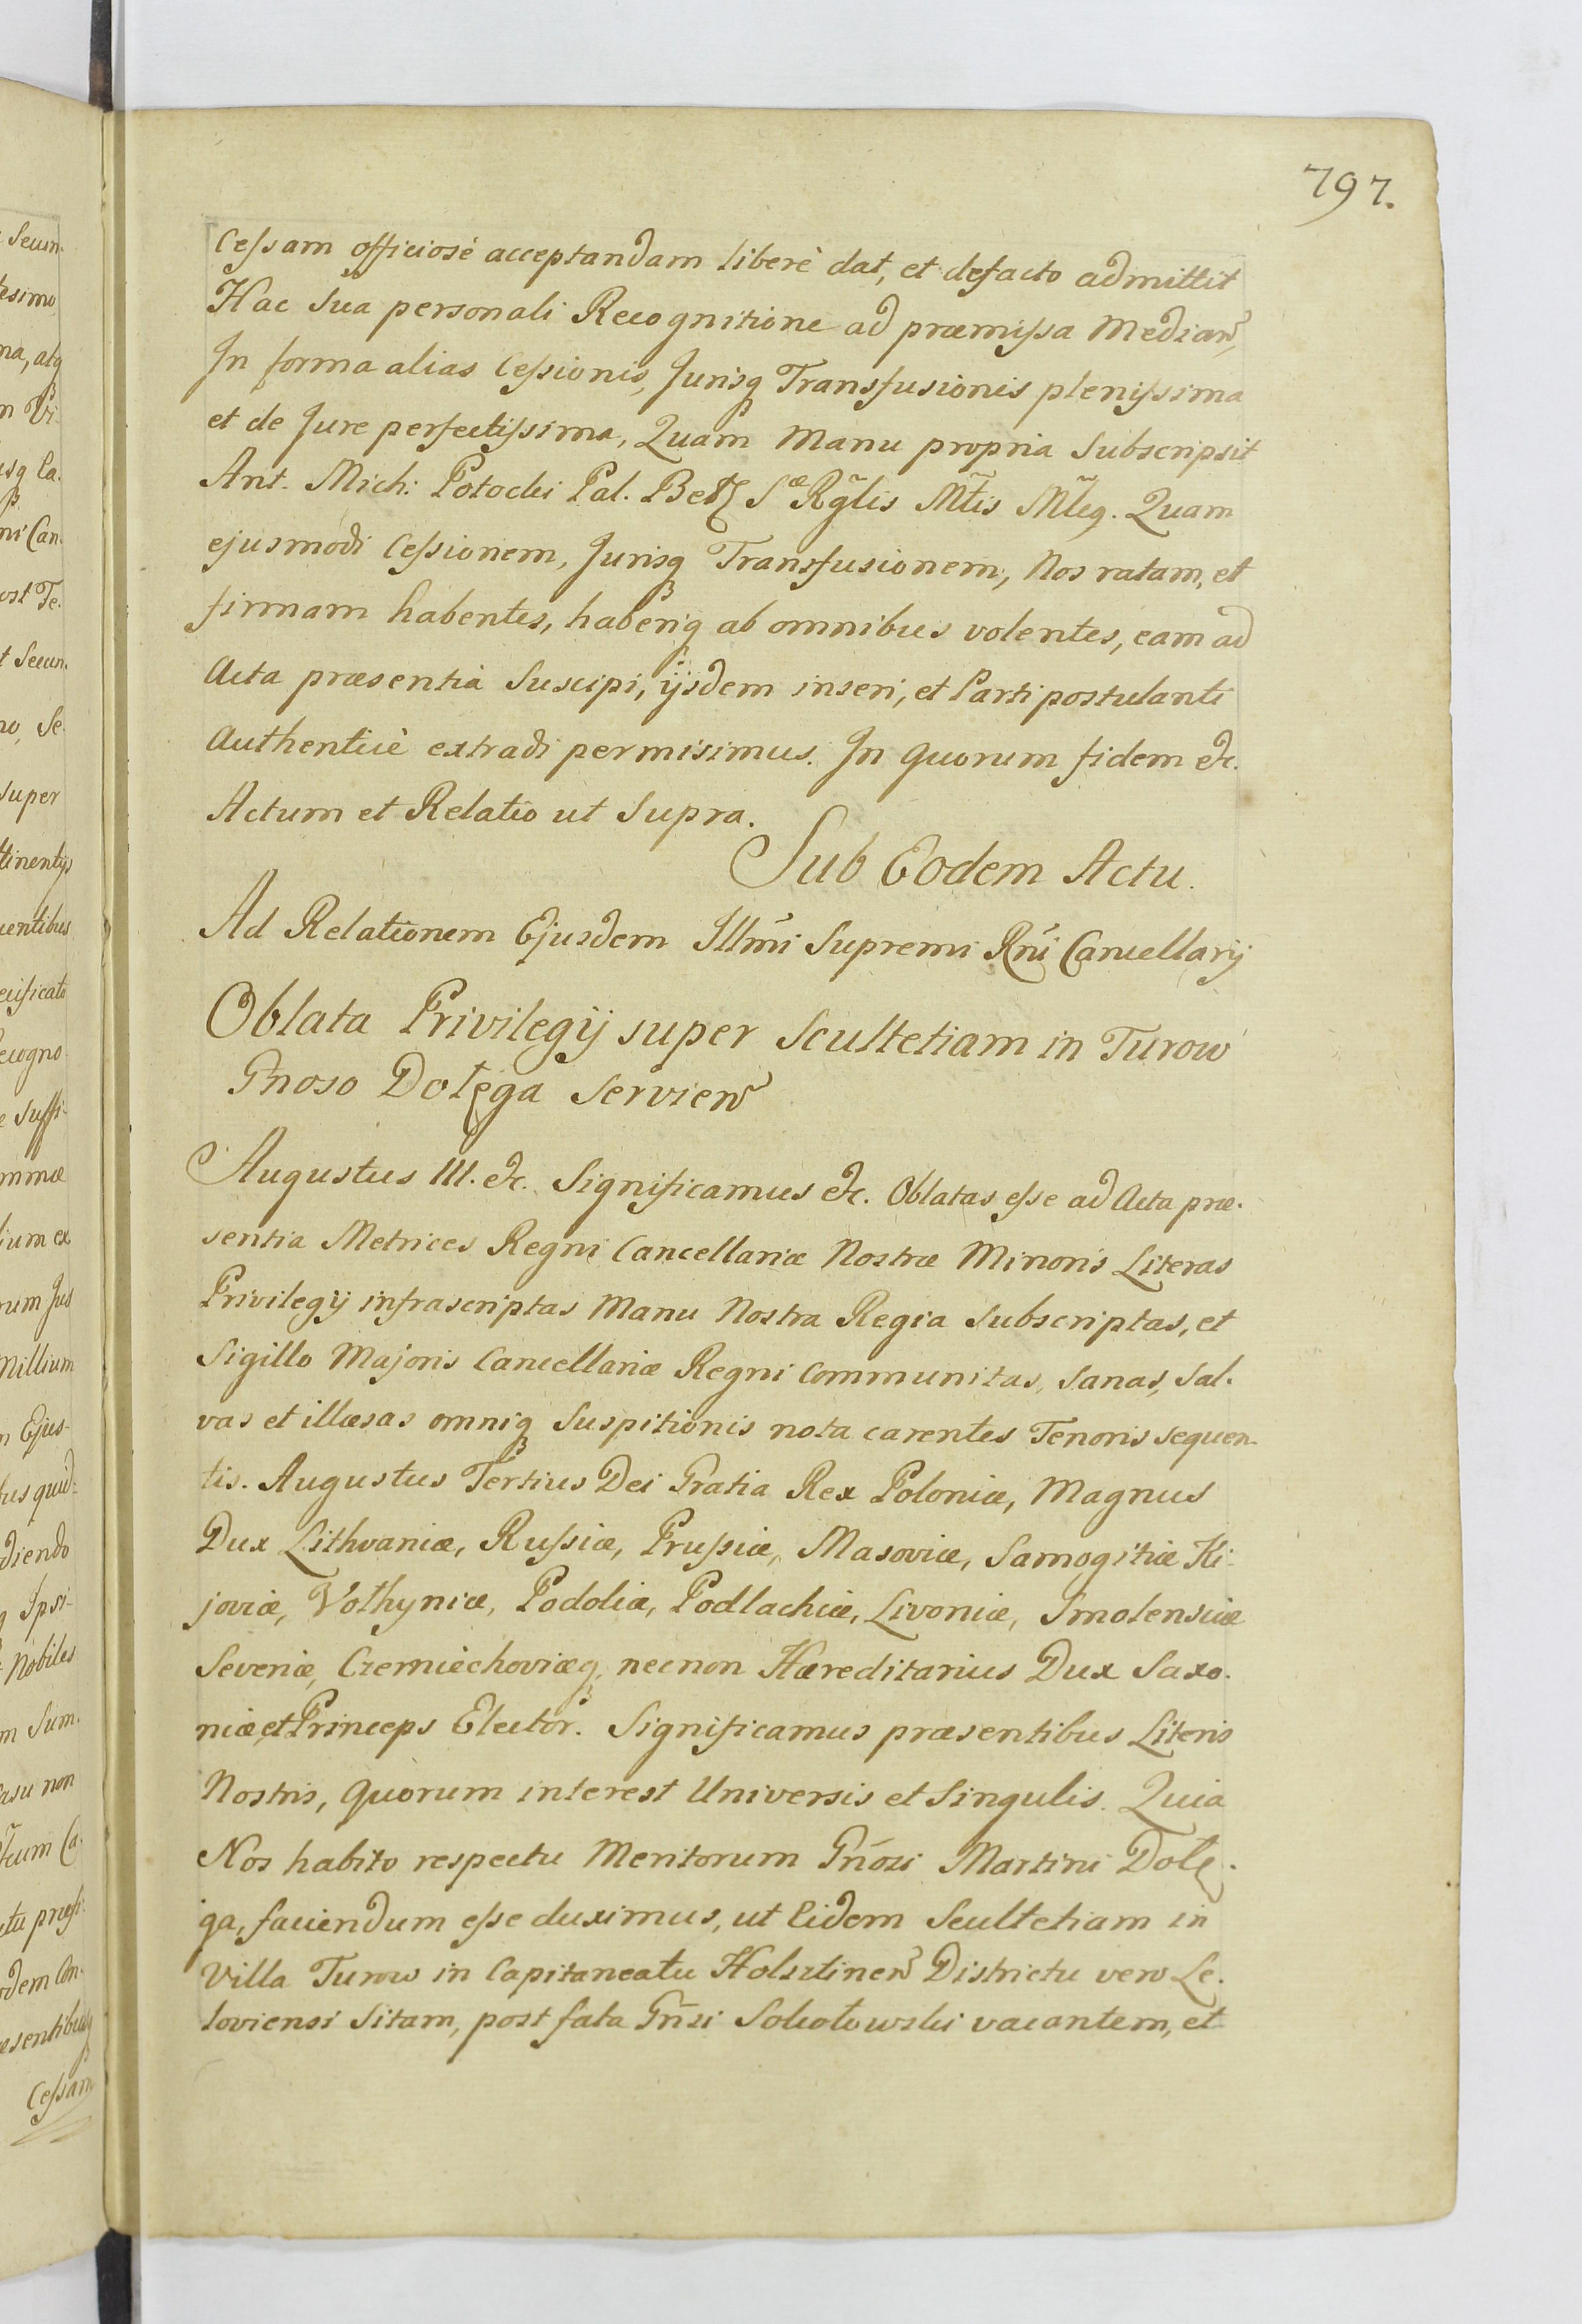 797.
Cessam officiosè acceptandam liberè dat, et defacto admittit
Hac Sua personali Recognitione ad præmissa Median̄,
In forma alias Cessionis, Jurisq Transfusionis plenissima
et de Jure perfectissima, Quam Manu propria Subscripsit
Ant. Mich: Potocki Pal. Bełz S æ Rg̃lis Mt̃is Ml̃eg. Quam
ejusmodi Cessionem, Jurisq Transfusionem, Nos ratam, et
firmam habentes, haberiq ab omnibus volentes, eam ad
Acta præsentia Suscipi, ijsdem inseri, et Parti postulanti
Authenticè extradi permisimus. In quorum fidem etc.
Actum et Relatio ut Supra.
Sub Eodem Actu.
Ad Relationem Ejusdem Illm̃i Supremi Rñi Cancellarij
Oblata Privilegij super Scultetiam in Turow
Gnoso Dołęga Servien̄
Augustus III. etc. Significamus etc. Oblatas esse ad Acta præ-
sentia Metrices Regni Cancellariæ Nostræ Minoris Literas
Privilegij infrascriptas Manu Nostra Regia Subscriptas, et
Sigillo Majoris Cancellariæ Regni Communitas, Sanas, Sal-
vas et illæsas omniq Suspitionis nota carentes Tenoris sequen-
tis. Augustus Tertius Dei Gratia Rex Poloniæ, Magnus
Dux Lithvaniæ, Russiæ, Prussiæ, Masoviæ, Samogitiæ Ki-
joviæ, Vołhyniæ, Podoliæ, Podlachiæ, Livoniæ, Smolensciæ
Severiæ, Czerniechoviæq, necnon Hæreditarius Dux Saxo-
niæ et Princeps Elector. Significamus præsentibus Literis
Nostris, quorum interest Universis et Singulis. Quia
Nos habito respectu Meritorum Gñosi Martini Dołę-
ga, faciendum esse duximus, ut Eidem Scultetiam in
Villa Turow in Capitaneatu Holsztinen̄ Districtu vero Le-
loviensi Sitam, post fata Gñsi Sokołowski vacantem, et